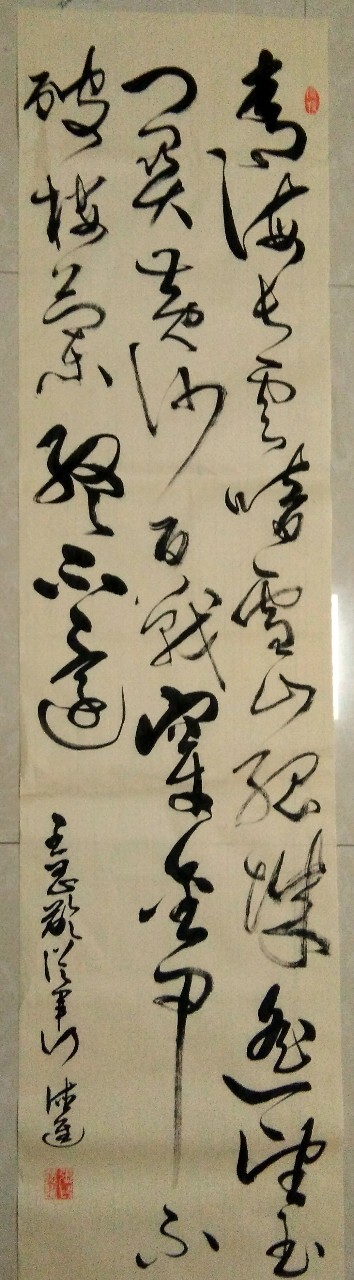 青海长云暗雪山孤城遥望玉
门关黄沙百战穿金甲不
破楼兰终不还
王昌龄从军行